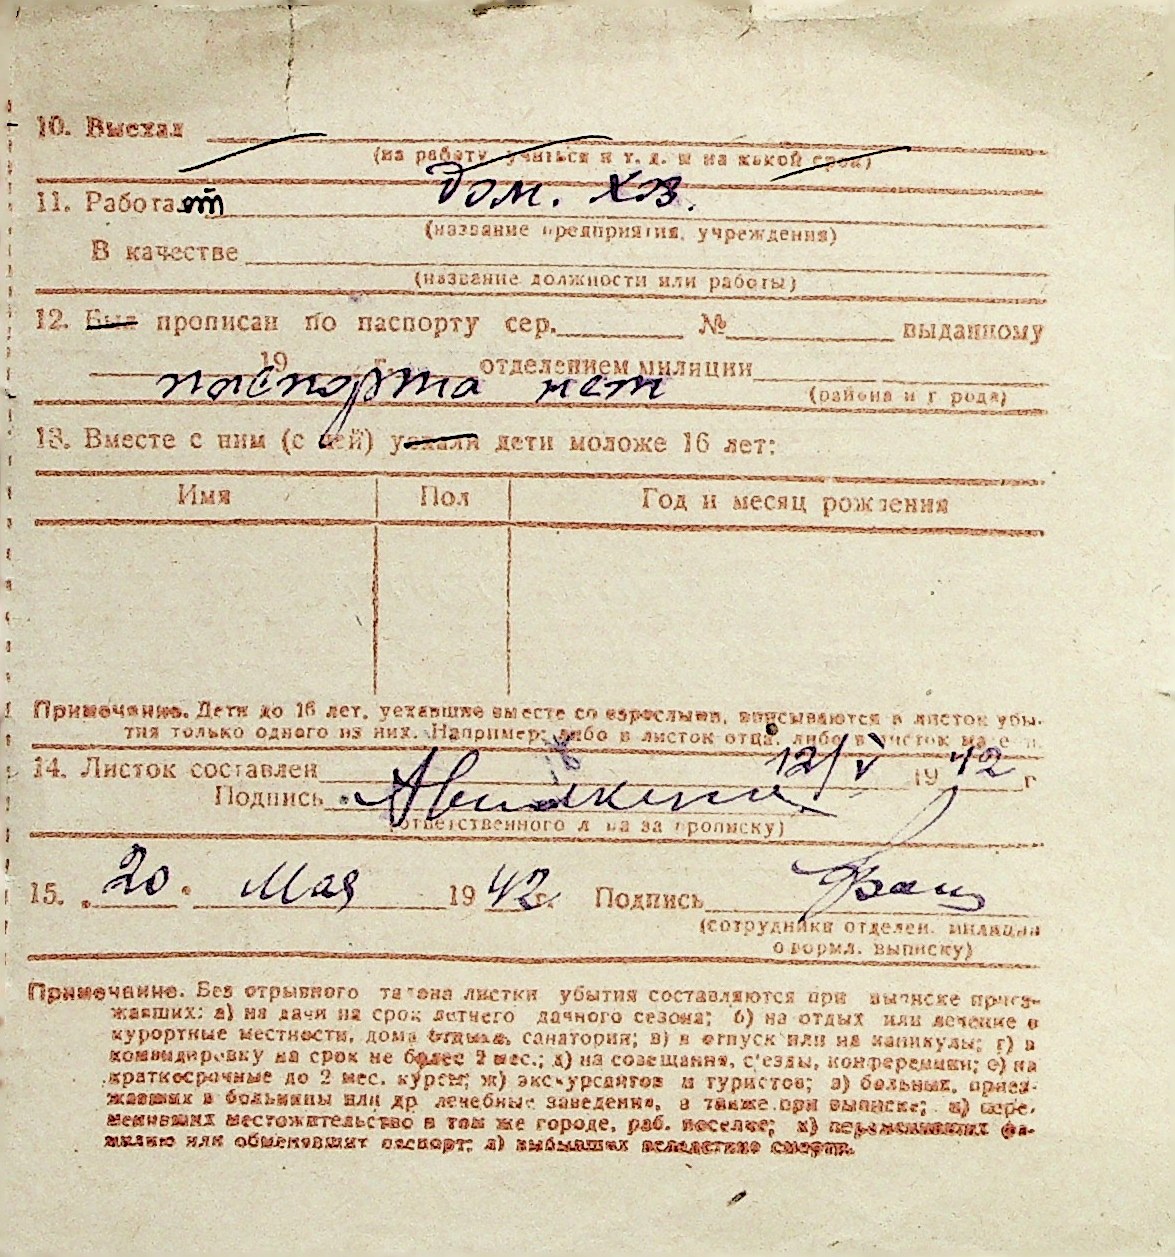 10. Выехал
(на работу, учиться и т. д. и на какой срок)
11. Работает дом. хоз.
(название предприятия, учреждения)
В качестве
(название должности или работы)
12. Был прописан по паспорту сер. № выданному
19 г. отделением милиции
паспорта нет
(района и города)
13. Вместе с ним (с ней) уехали дети моложе 16 лет:
Имя Пол Год и месяц рождения
Примечание. Дети до 16 лет, уехавшие вместе со взрослыми, вписываются в листок убы-
тия только одного из них. Например: либо в листок отца, либо в листок матери.
14. Листок составлен 12/V 1942 г
Подпись
(ответственного лица за прописку)
15. „20" Мая 1942 г. Подпись
(сотрудника отделен. милиции
оформл. выписку)
Примечание. Без отрывного талона листки убытия составляются при выписке приез-
жавших: а) на дачи на срок летнего дачного сезона; б) на отдых или лечение в
курортные местности, дома отдыха, санатории; в) в отпуск или на каникулы; г) в
командировку на срок не более 2 мес.; д) на совещания, с'езды, конференции; е) на
краткосрочные до 2 мес. курсы; ж) экскурсантов и туристов; з) больных, приез-
жавших в больницы или др лечебные заведения, а также при выписке; и) пере-
менивших местожительство в том же городе, раб. поселке; к) переменивших фа-
милию или обменявших паспорт; л) выбывших вследствие смерти.